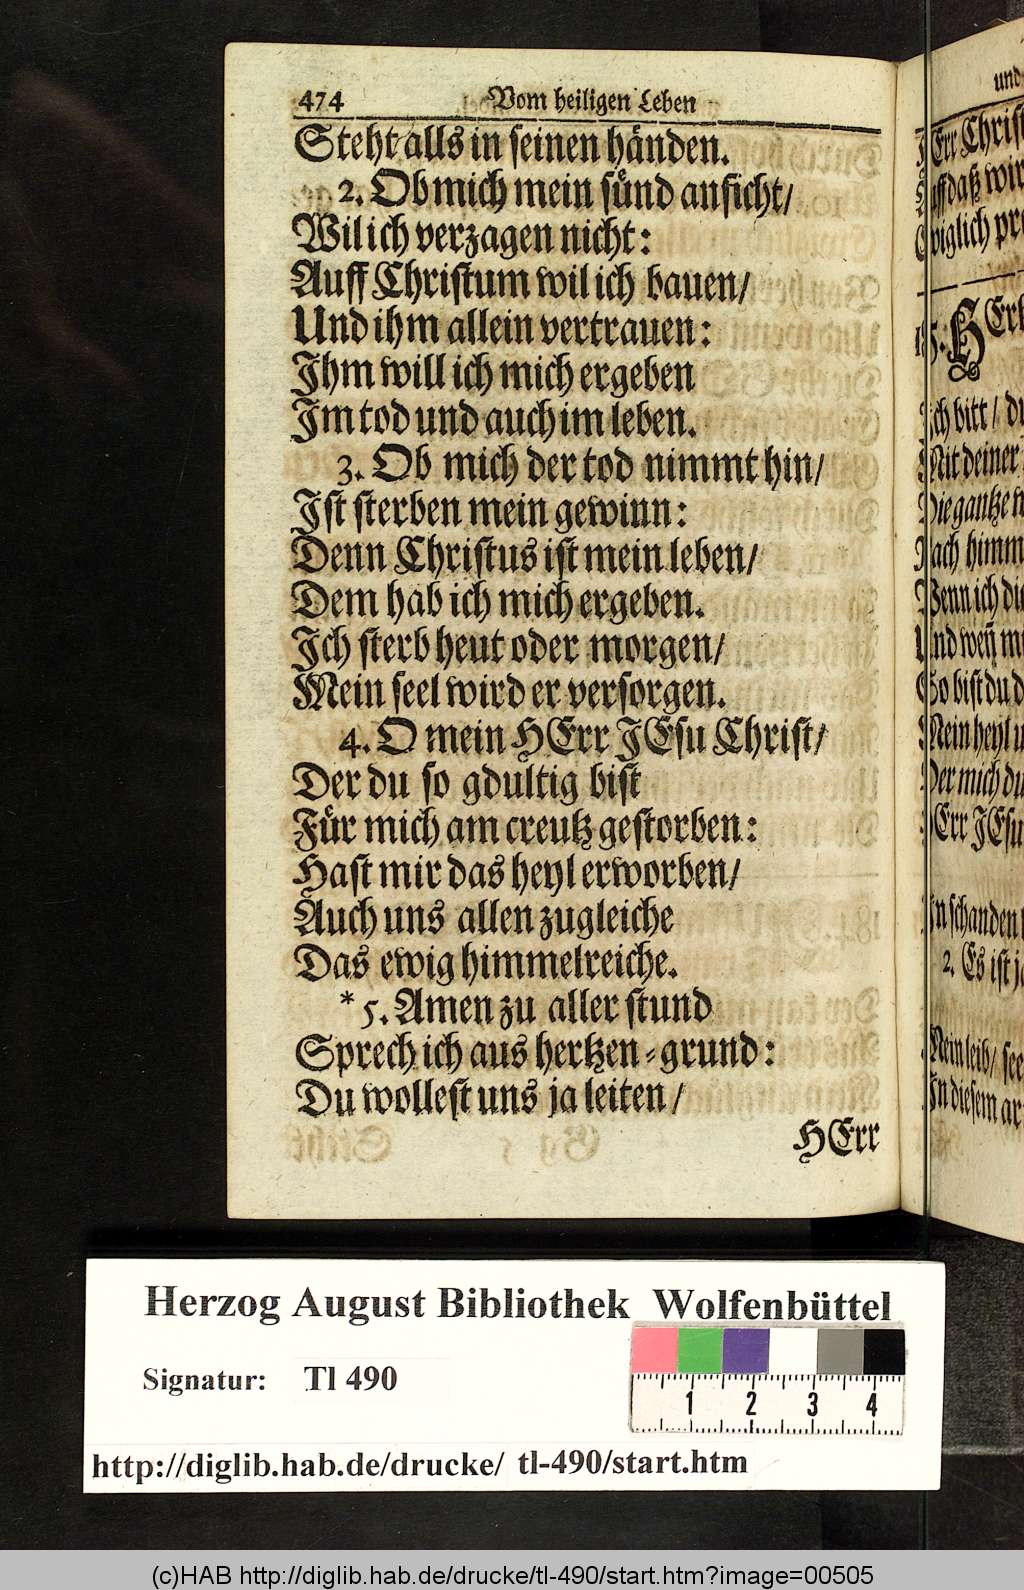 474 Vom heiligen Leben
Steht alls in seinen händen.
2. Ob mich mein sünd anficht/
Wil ich verzagen nicht:
Auff Christum wil ich bauen/
Und ihm allein vertrauen:
Ihm will ich mich ergeben
Im tod und auch im leben.
3. Ob mich der tod nimmt hin/
Ist sterben mein gewinn:
Denn Christus ist mein leben/
Dem hab ich mich ergeben.
Ich sterb heut oder morgen/
Mein seel wird er versorgen.
4. O mein HErr JEsu Christ/
Der du so gdultig bist
Für mich am creutz gestorben:
Hast mir das heyl erworben/
Auch uns allen zugleiche
Das ewig himmelreiche.
* 5. Amen zu aller stund
Sprech ich aus hertzen-grund:
Du wollest uns ja leiten/
HErr
und
Err Christ
auff daß wir
wiglich
HErr
Ich bitt/ du
Mit deiner
Die gantze
Nach himm
Wenn ich
Und weñ
So bist du
Mein heyl
Der mich
HErr JEsu
In schanden
2. Es ist
Mein leib/ see
In diesem
Herzog August Bibliothek Wolfenbüttel
Signatur: Tl 490
1 2 3 4
http://diglib.hab.de/drucke/ tl-490/start.htm
(c)HAB http://diglib.hab.de/drucke/tl-490/start.htm?image=00505